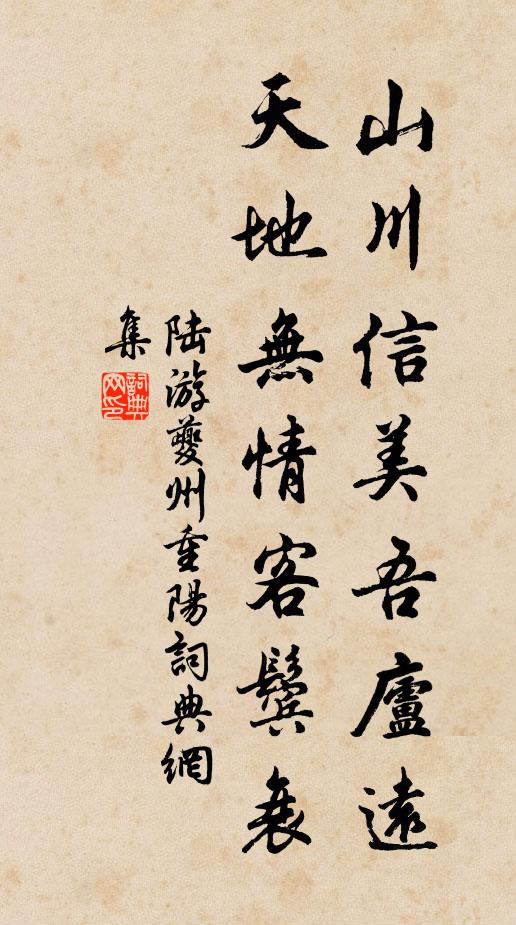 山川信美吾廬遠
天地無情客鬢衰
陸游夔州重陽詞典網
集
詞典網印